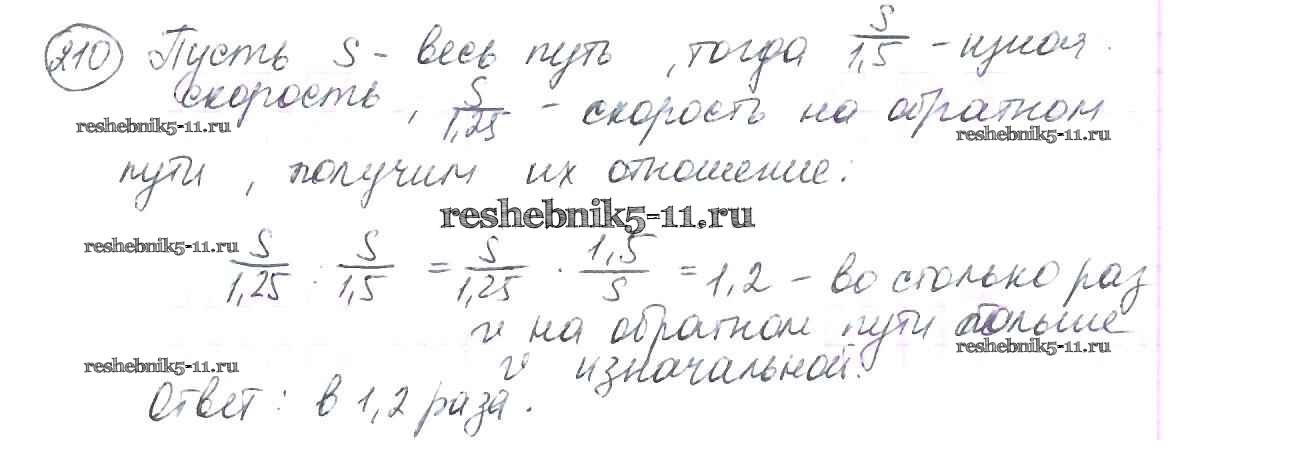 210 Пусть S - весь путь, тогда S/1,5 - изнач.
скорость, S/1,25 - скорость на обратном
reshebnik5-11.ru reshebnik5-11.ru
пути, получим их отношение:
reshebnik5-11.ru
reshebnik5-11.ru
S/1,25 : S/1,5 = S/1,25 · 1,5/S = 1,2 - во столько раз
v на обратном пути больше
reshebnik5-11.ru
reshebnik5-11.ru
v изначальной.
Ответ: в 1,2 раза.